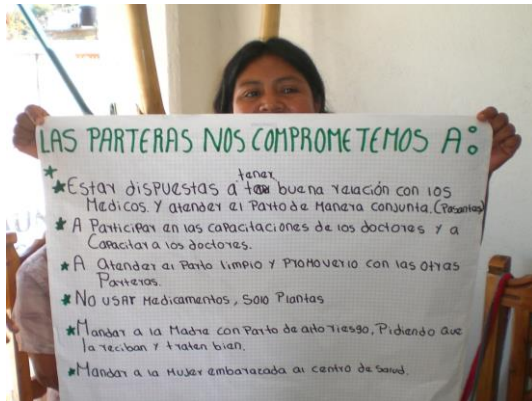 LAS PARTERAS NOS COMPROMETEMOS A:
tener
★ Estar dispuestas a buena relación con los
Medicos. Y atender el Parto de Manera conjunta. (Pasantes)
★ A Participar en las capacitaciones de los doctores y a
Capacitar a los doctores.
★ A atender el Parto limpio y Promoverlo con las otras
Parteras.
★ No usar Medicamentos, Solo Plantas
★ Mandar a la Madre con Parto de alto riesgo, Pidiendo que
la reciban y traten bien.
★ Mandar a la Mujer embarazada al centro de Salud.